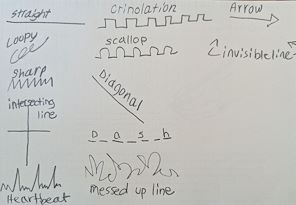 straight
crinolation
Arrow
Loopy
scallop
invisible line
sharp
Diagonal
intersecting
line
Dash
Heartbeat
messed up line